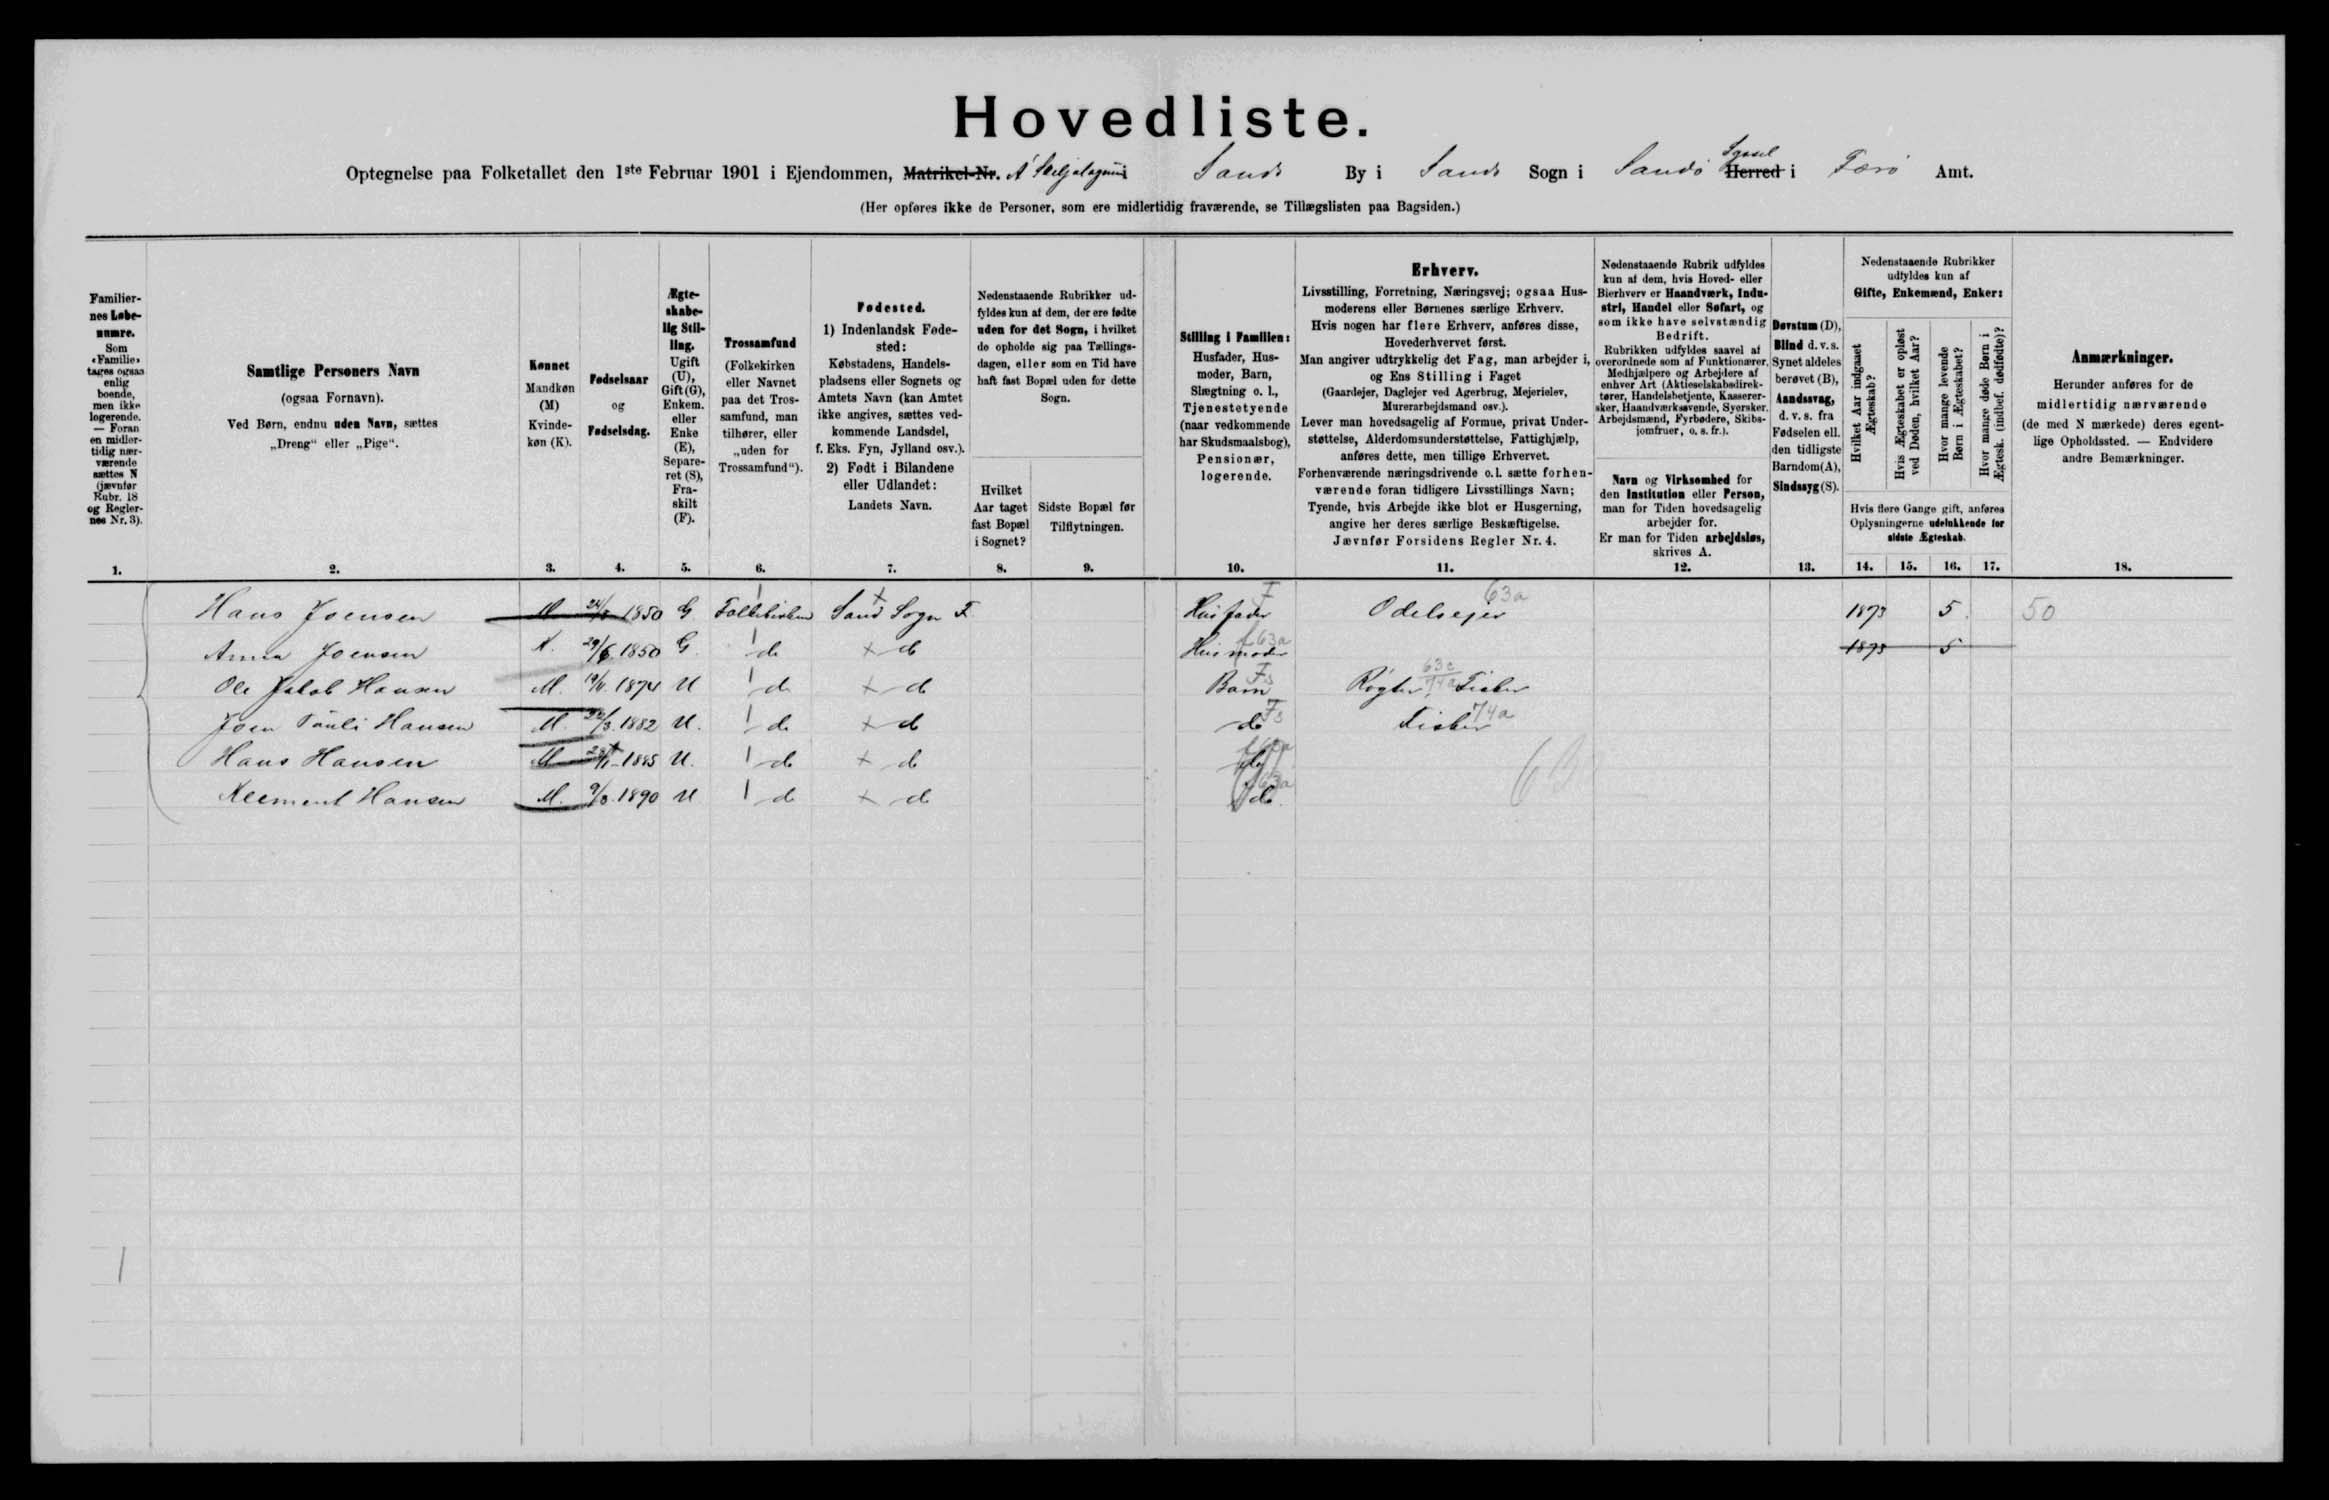 Hovedliste.
Optegnelse paa Folketallet den 1ste Februar 1901 i Ejendommen, Matrikel-Nr. Sands By i Sands Sogn i Sandø Syssel Herred i Færø Amt.
(Her opføres ikke de Personer, som ere midlertidig fraværende, se Tillægslisten paa Bagsiden.)
Familier-
nes Løbe-
numre.
Som
«Familie»
tages ogsaa
enlig
boende,
men ikke
logerende.
— Foran
en midler-
tidig nær-
værende
sættes N
(jævnfør
Rubr. 18
og Regler-
nes Nr. 3).
1.
Samtlige Personers Navn
(ogsaa Fornavn).
Ved Børn, endnu uden Navn, sættes
„Dreng" eller „Pige".
2.
Kønnet
Mandkøn
(M)
Kvinde-
køn (K).
3.
Fødselsaar
og
Fødselsdag.
4.
Ægte-
skabe-
lig Stil-
ling.
Ugift
(U),
Gift (G),
Enkem.
eller
Enke
(E),
Separe-
ret (S),
Fra-
skilt
(F).
5.
Trossamfund
(Folkekirken
eller Navnet
paa det Tros-
samfund, man
tilhører, eller
„uden for
Trossamfund").
6.
Fødested.
1) Indenlandsk Føde-
sted:
Købstadens, Handels-
pladsens eller Sognets og
Amtets Navn (kan Amtet
ikke angives, sættes ved-
kommende Landsdel,
f. Eks. Fyn, Jylland osv.).
2) Født i Bilandene
eller Udlandet:
Landets Navn.
7.
Nedenstaaende Rubrikker ud-
fyldes kun af dem, der ere fødte
uden for det Sogn, i hvilket
de opholde sig paa Tællings-
dagen, eller som en Tid have
haft fast Bopæl uden for dette
Sogn.
Hvilket
Aar taget
fast Bopæl
i Sognet?
8.
Sidste Bopæl før
Tilflytningen.
9.
Stilling i Familien:
Husfader, Hus-
moder, Barn,
Slægtning o. l.,
Tjenestetyende
(naar vedkommende
har Skudsmaalsbog),
Pensionær,
logerende.
10.
Erhverv.
Livsstilling, Forretning, Næringsvej; ogsaa Hus-
moderens eller Børnenes særlige Erhverv.
Hvis nogen har flere Erhverv, anføres disse,
Hovederhvervet først.
Man angiver udtrykkelig det Fag, man arbejder i,
og Ens Stilling i Faget
(Gaardejer, Daglejer ved Agerbrug, Mejerielev,
Murerarbejdsmand osv.).
Lever man hovedsagelig af Formue, privat Under-
støttelse, Alderdomsunderstøttelse, Fattighjælp,
anføres dette, men tillige Erhvervet.
Forhenværende næringsdrivende o. l. sætte forhen-
værende foran tidligere Livsstillings Navn;
Tyende, hvis Arbejde ikke blot er Husgerning,
angive her deres særlige Beskæftigelse.
Jævnfør Forsidens Regler Nr. 4.
11.
Nedenstaaende Rubrik udfyldes
kun af dem, hvis Hoved- eller
Bierhverv er Haandværk, Indu-
stri, Handel eller Søfart, og
som ikke have selvstændig
Bedrift.
Rubrikken udfyldes saavel af
overordnede som af Funktionærer,
Medhjælpere og Arbejdere af
enhver Art (Aktieselskabsdirek-
tører, Handelsbetjente, Kasserer-
sker, Haandværkssvende, Syersker,
Arbejdsmænd, Fyrbødere, Skibs-
jomfruer, o. s. fr.).
Navn og Virksomhed for
den Institution eller Person,
man for Tiden hovedsagelig
arbejder for.
Er man for Tiden arbejdsløs,
skrives A.
12.
Døvstum (D),
Blind d. v. s.
Synet aldeles
berøvet (B),
Aandssvag,
d. v. s. fra
Fødselen ell.
den tidligste
Barndom (A),
Sindssyg (S).
13.
Nedenstaaende Rubrikker
udfyldes kun af
Gifte, Enkemænd, Enker:
Hvilket Aar indgaaet
Ægteskab?
Hvis Ægteskabet er opløst
ved Døden, hvilket Aar?
Hvor mange levende
Børn i Ægteskabet?
Hvor mange døde Børn i
Ægtesk. (indbef. dødfødte)?
Hvis flere Gange gift, anføres
Oplysningerne udelukkende for
sidste Ægteskab.
14. 15. 16. 17.
Anmærkninger.
Herunder anføres for de
midlertidig nærværende
(de med N mærkede) deres egent-
lige Opholdssted. — Endvidere
andre Bemærkninger.
18.
Hans Joensen M 1850 G Folkekirken Sand Sogn F Husfader F Odelsejer 63a 1873 5 50
Anna Joensen K. 29/6 1850 G. do + do Husmoder 63a 1873 5
Ole Jakob Hansen M. 1874 U do + do Barn Fs Røgter, Fisker 63c 74a
Joen Pauli Hansen M. 1882 U. do + do do Fs Fisker 74a
Hans Hansen M 1885 U. do + do do
Klement Hansen M. 1890 U do + do do. 63a